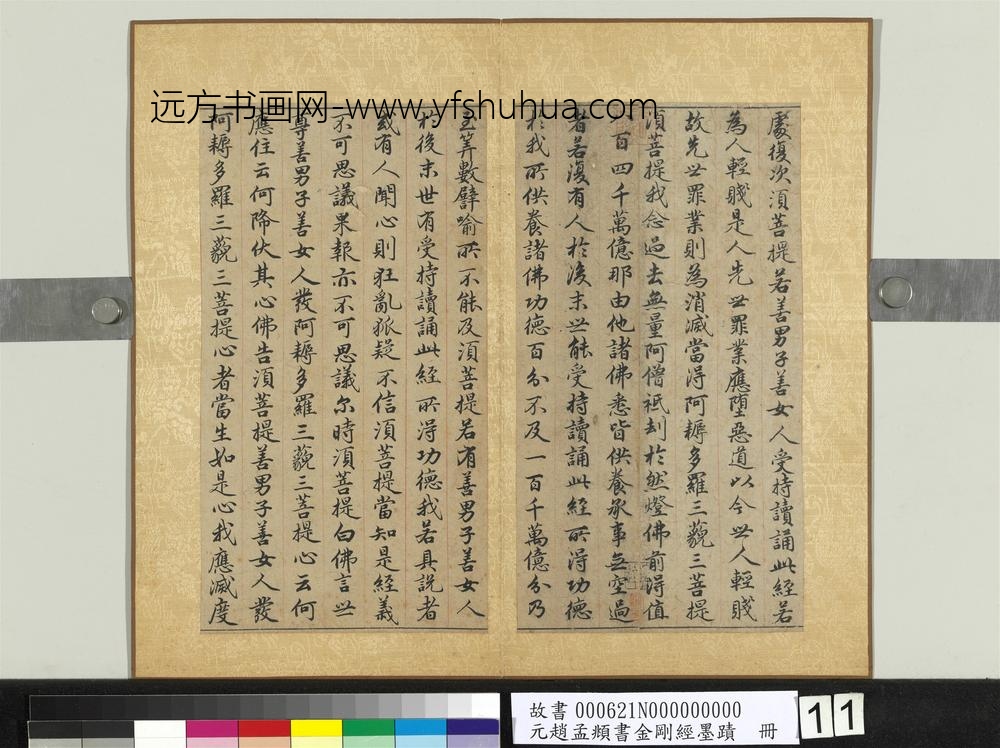 远方书画网-www.yfshuhua.com
處復次湏菩提若善男子善女人受持讀誦此經若
為人輕賤是人先世罪業應墮惡道以今世人輕賤
故先世罪業則為消滅當得阿耨多羅三藐三菩提
湏菩提我念過去無量阿僧祇刼於然燈佛前得值
八百四千萬億那由他諸佛悉皆供養承事無空過
者若復有人於後末世能受持讀誦此經所得功德
於我所供養諸佛功德百分不及一百千萬億分乃
至筭數譬喻所不能及湏菩提若有善男子善女人
於後末世有受持讀誦此經所得功德我若具説者
或有人聞心則狂亂狐疑不信湏菩提當知是經義
不可思議果報亦不可思議尔時湏菩提白佛言世
尊善男子善女人發阿耨多羅三藐三菩提心云何
應住云何降伏其心佛告湏菩提善男子善女人發
阿耨多羅三藐三菩提心者當生如是心我應滅度
故書 000621N000000000
元趙孟頫書金剛經墨蹟 冊
11